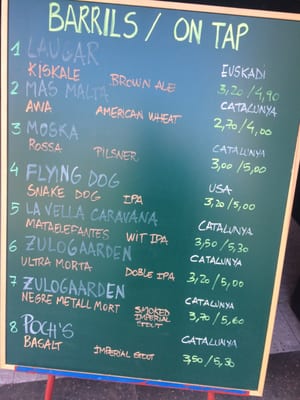 BARRILS / ON TAP
1 LAUGAR EUSKADI
KISKALE BROWN ALE 3,20/4,90
2 MAS MALTA CATALUNYA
AWA AMERICAN WHEAT 2,70/4,00
3 MOSKA CATALUNYA
ROSSA PILSNER 3,00/5,00
4 FLYING DOG USA
SNAKE DOG IPA 3,20/5,00
5 LA VELLA CARAVANA CATALUNYA
MATAELEFANTES WIT IPA 3,50/5,30
6 ZULOGAARDEN CATALUNYA
ULTRA MORTA DOBLE IPA 3,20/5,00
7 ZULOGAARDEN CATALUNYA
NEGRE METALL MORT SMOKED IMPERIAL STOUT 3,70/5,60
8 POCH'S CATALUNYA
BAGALT IMPERIAL STOUT 3,50/5,30